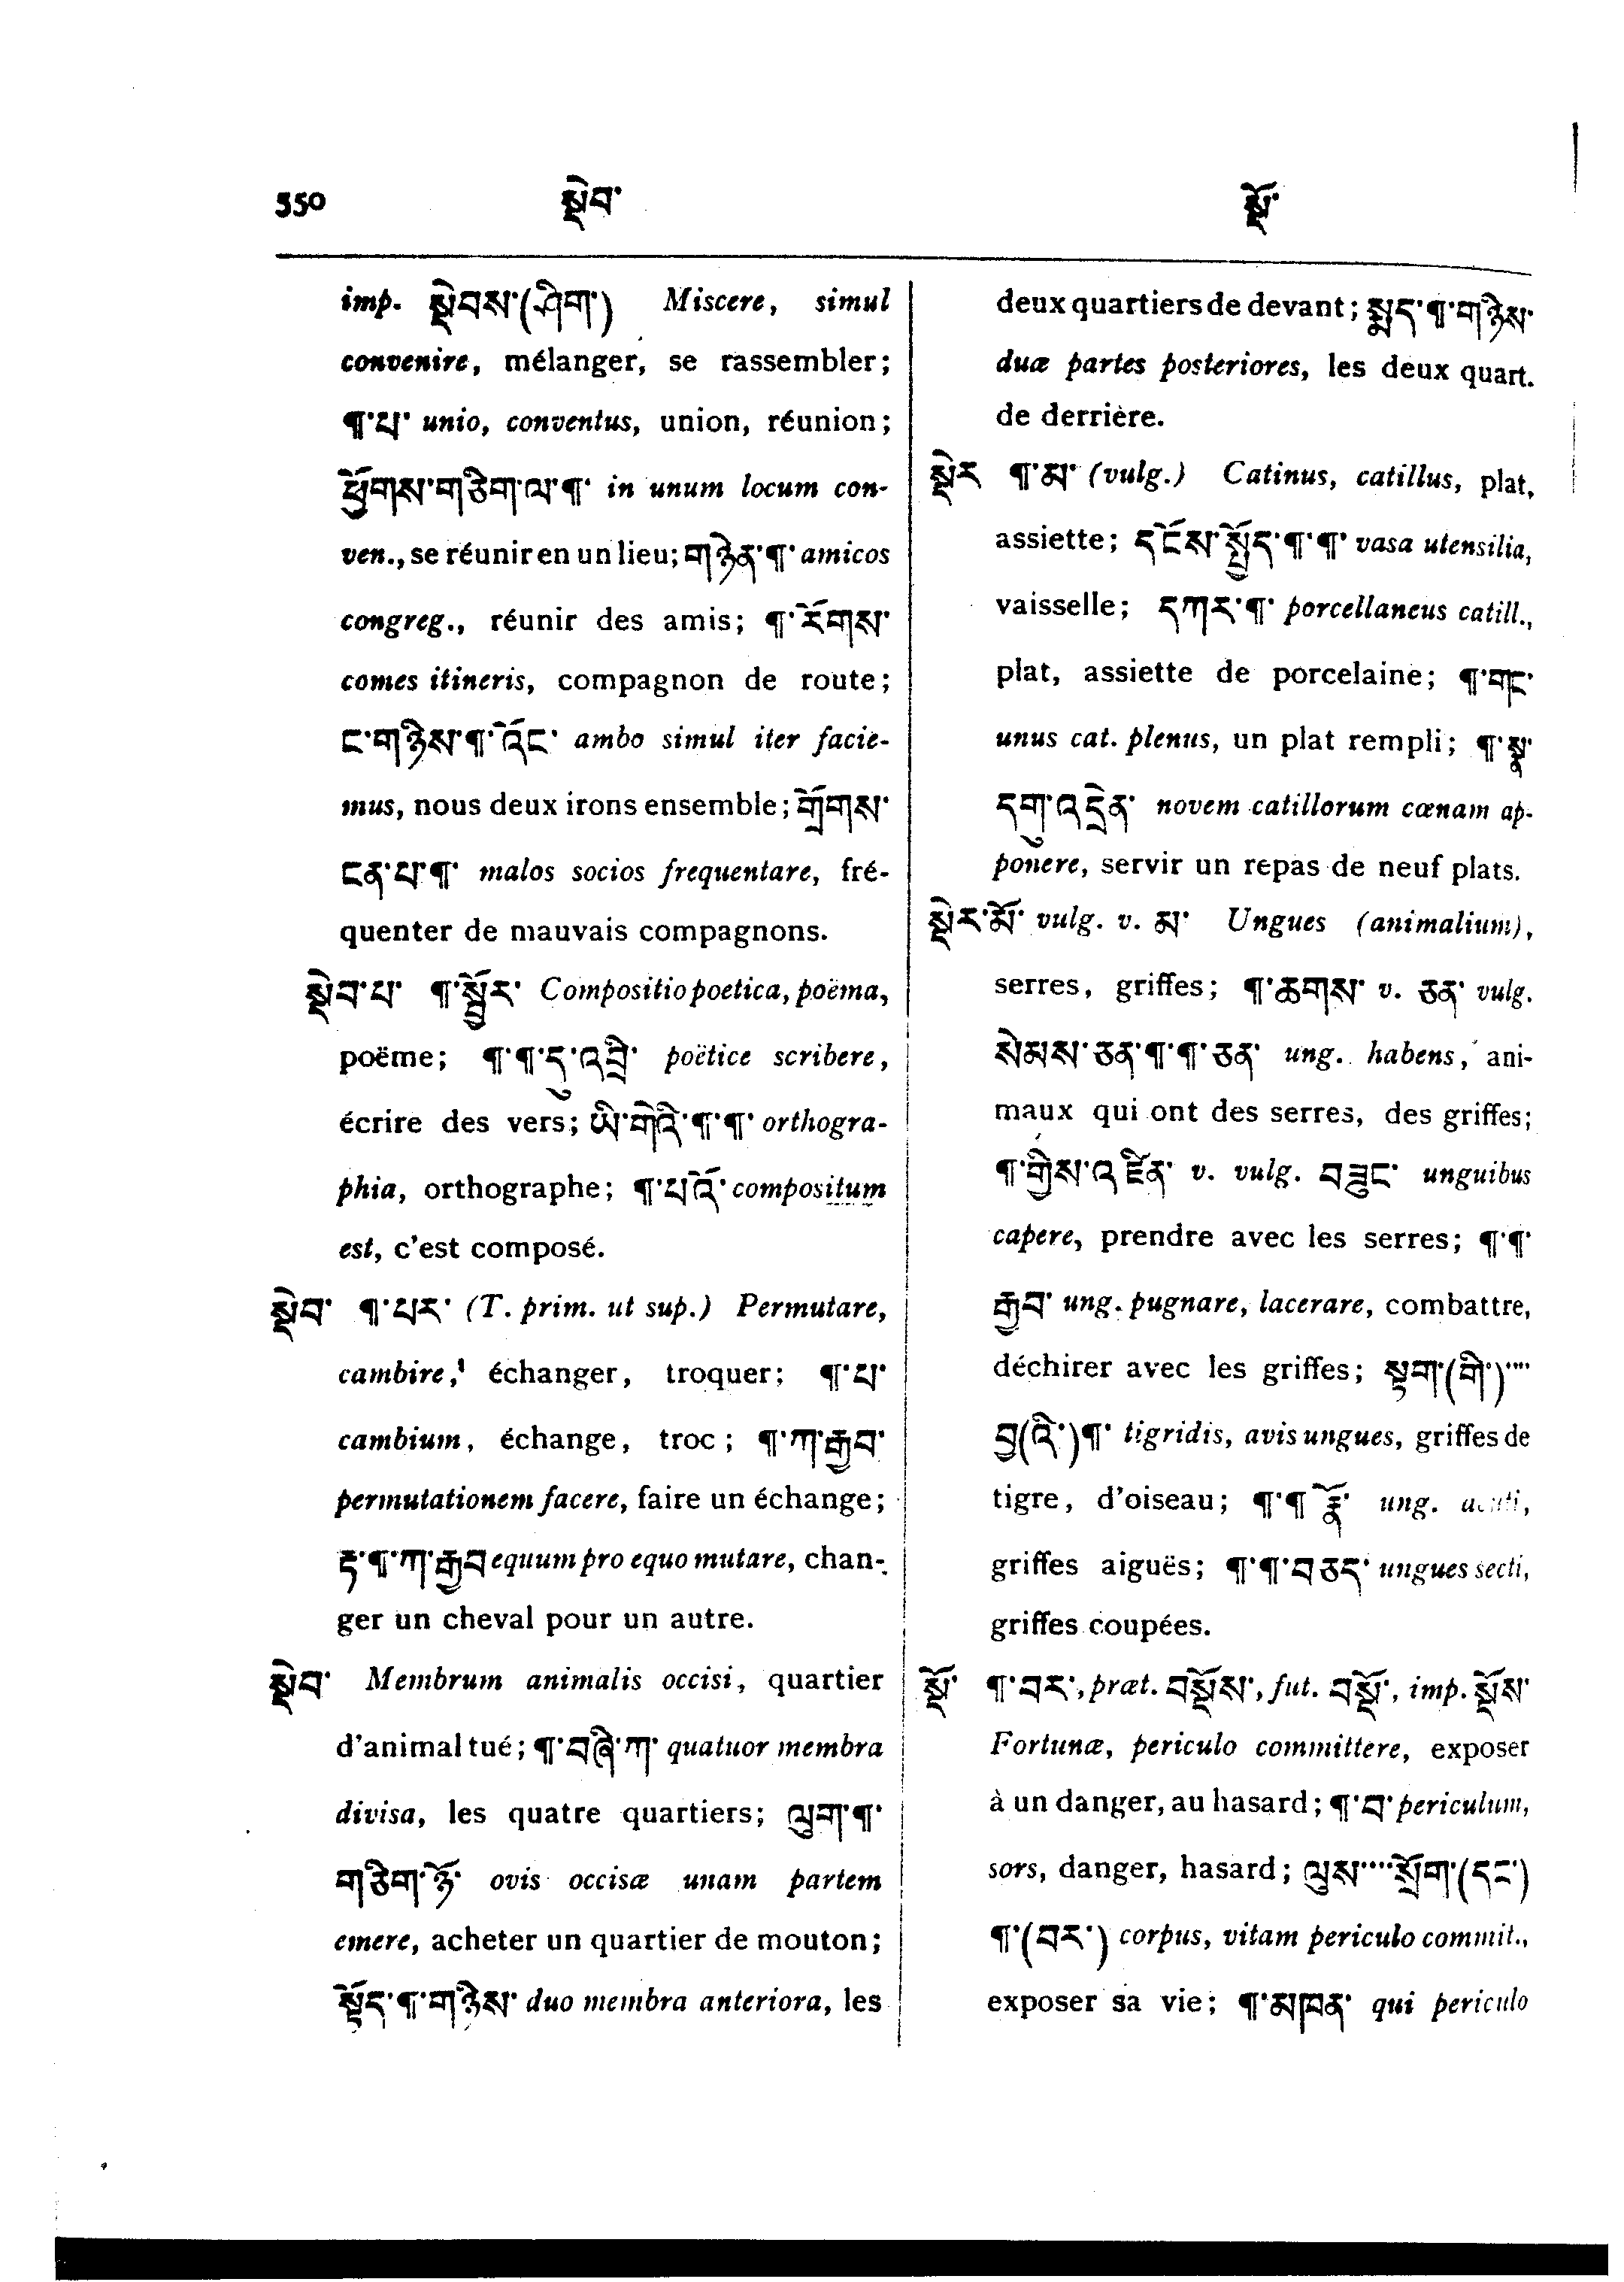 550 སྡེབ་ སྡོ་
imp. སྡེབས་(ཤིག་) Miscere, simul
convenire, mélanger, se rassembler;
¶་པ་ unio, conventus, union, réunion;
ཕྱོགས་གཅིག་ལ་¶་ in unum locum con-
ven., se réunir en un lieu; གཉེན་¶་ amicos
congreg., réunir des amis; ¶་རོགས་
comes itineris, compagnon de route;
ང་གཉིས་¶་འོང་ ambo simul iter facie-
mus, nous deux irons ensemble; གྲོགས་
ངན་པ་¶་ malos socios frequentare, fré-
quenter de mauvais compagnons.
སྡེབ་པ་ ¶་སྦྱོར་ Compositio poetica, poëma,
poëme; ¶་¶་དུ་འབྲི་ poëtice scribere,
écrire des vers; ཡི་གེའི་¶་¶་ orthogra-
phia, orthographe; ¶་པའོ་ compositum
est, c'est composé.
སྡེབ་ ¶་པར་ (T. prim. ut sup.) Permutare,
cambire, échanger, troquer; ¶་པ་
cambium, échange, troc; ¶་ཀ་རྒྱབ་
permutationem facere, faire un échange;
རྟ་¶་ཀ་རྒྱབ equum pro equo mutare, chan-
ger un cheval pour un autre.
སྡེབ་ Membrum animalis occisi, quartier
d'animal tué; ¶་བཞི་ཀ་ quatuor membra
divisa, les quatre quartiers; ལུག་¶་
གཅིག་ཉོ་ ovis occisæ unam partem
emere, acheter un quartier de mouton;
སྟོད་¶་གཉིས་ duo membra anteriora, les
deux quartiers de devant; སྨད་¶་གཉིས་
duæ partes posteriores, les deux quart.
de derrière.
སྡེར ¶་མ་ (vulg.) Catinus, catillus, plat,
assiette; དངོས་སྤྱོད་¶་¶་ vasa utensilia,
vaisselle; དཀར་¶་ porcellaneus catill.,
plat, assiette de porcelaine; ¶་གང་
unus cat. plenus, un plat rempli; ¶་སྣ་
དགུ་འདྲེན་ novem catillorum cœnam ap-
ponere, servir un repas de neuf plats.
སྡེར་མོ་ vulg. v. མ་ Ungues (animalium),
serres, griffes; ¶་ཆགས་ v. ཅན་ vulg.
སེམས་ཅན་¶་¶་ཅན་ ung. habens, ani-
maux qui ont des serres, des griffes;
¶་གྱིས་འཛིན་ v. vulg. བཟུང་ unguibus
capere, prendre avec les serres; ¶་¶་
རྒྱབ་ ung. pugnare, lacerare, combattre,
déchirer avec les griffes; སྟག་(གི་)····
བྱ(འི་)¶་ tigridis, avis ungues, griffes de
tigre, d'oiseau; ¶་¶ རྣོ་ ung. acuti,
griffes aiguës; ¶་¶་བཅད་ ungues secti,
griffes coupées.
སྡོ་ ¶་བར་, præt. བསྡོས་, fut. བསྡོ་, imp. སྡོས་
Fortunæ, periculo committere, exposer
à un danger, au hasard; ¶་བ་ periculum,
sors, danger, hasard; ལུས····སྲོག་(དང་)
¶་(བར་) corpus, vitam periculo commit.,
exposer sa vie; ¶་མཁན་ qui periculo